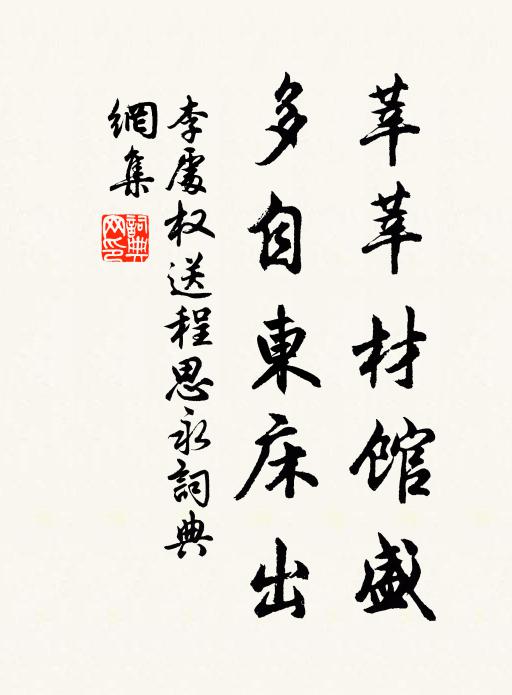 莘莘材館盛
多自東床出
李處权送程思永詞典
網集
詞典
网印